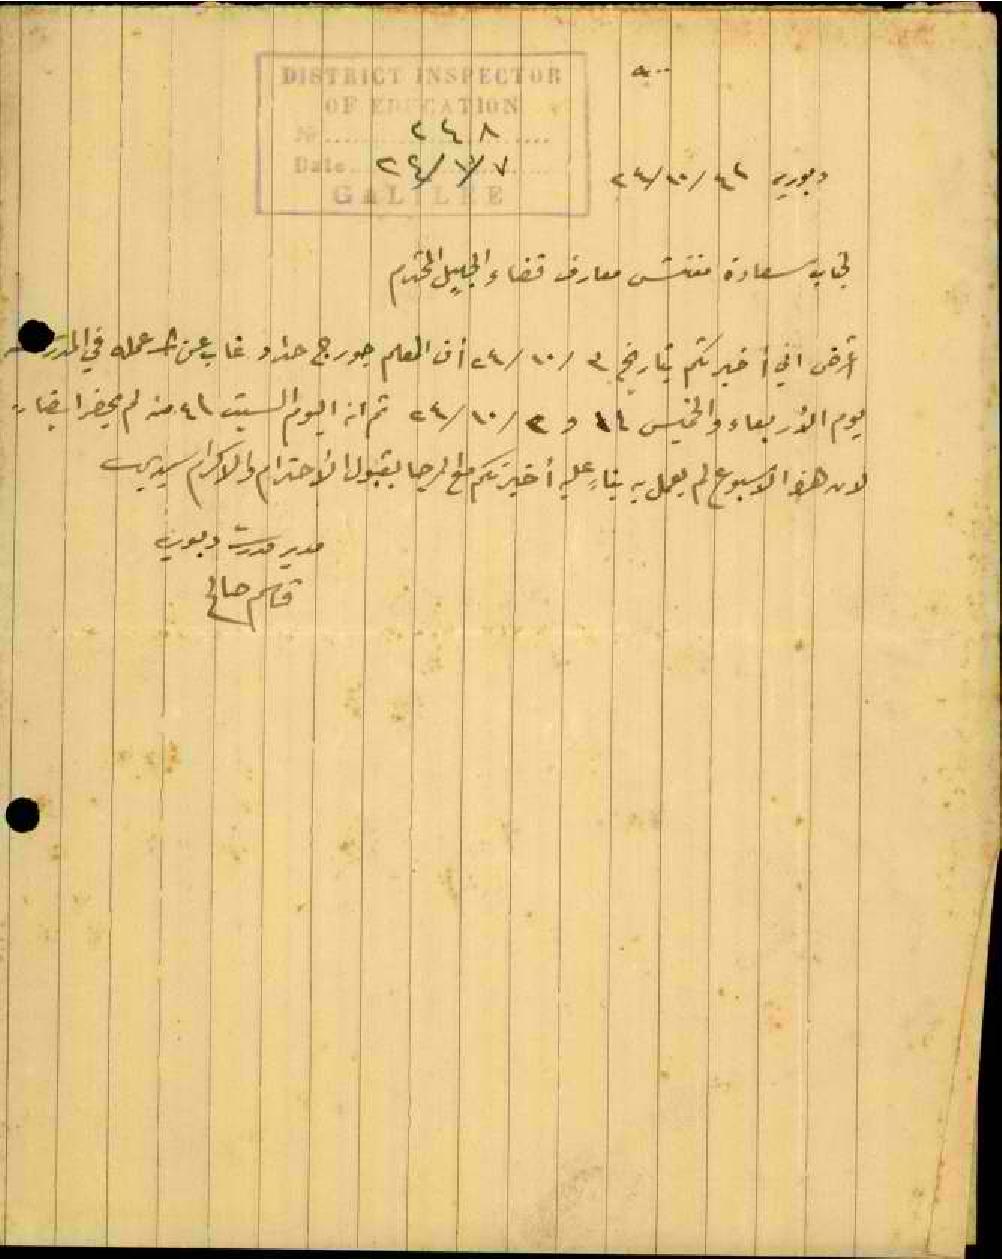 DISTRICT INSPECTOR
OF EDUCATION
No ٢٤٨
Date ٢٤/١٠/٧
GALILEE
دبوريه ٢٤/١٠/٤
لجناب سعادة مفتش معارف قضاء الجليل المحترم
أعرض اني أخبرتكم بتاريخ ٣ /١٠ /٢٤ أن المعلم جورج حداد غاب عن عمله في المدرسة
يوم الأربعاء والخميس ١ و ٢ /١٠ /٢٤ ثم انه اليوم السبت ٤ منه لم يحضر ايضا
لان هذا الاسبوع لم يعمل به بناء عليه أخبرتكم مع الرجا بقبول الأحترام والاكرام سيدي
مدير مدرسة دبوريه
قاسم صالح